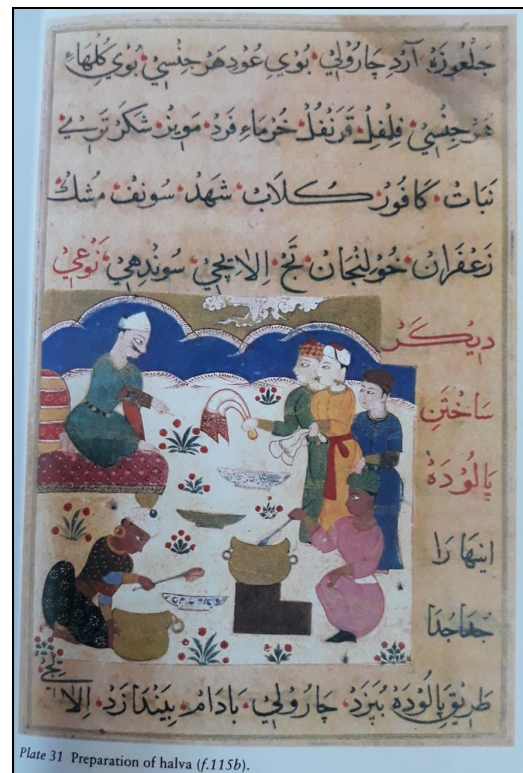 جلغوزه آرد چارولي بوي عود هر جنسي بوي گلهاء
هر جنسي فلفل قرنفل خرماء فرد مويز شكر تري
نبات كافور كلاب شهد سونف مشك
زعفران خولنجان تخ الايچي سوندهي نوعي
ديكر
ساختن
پالوده
اينها را
جدا جدا
طريق پالوده بپزد چارولي بادام بيندازد الا
يچي
Plate 31 Preparation of halva (f.115b).